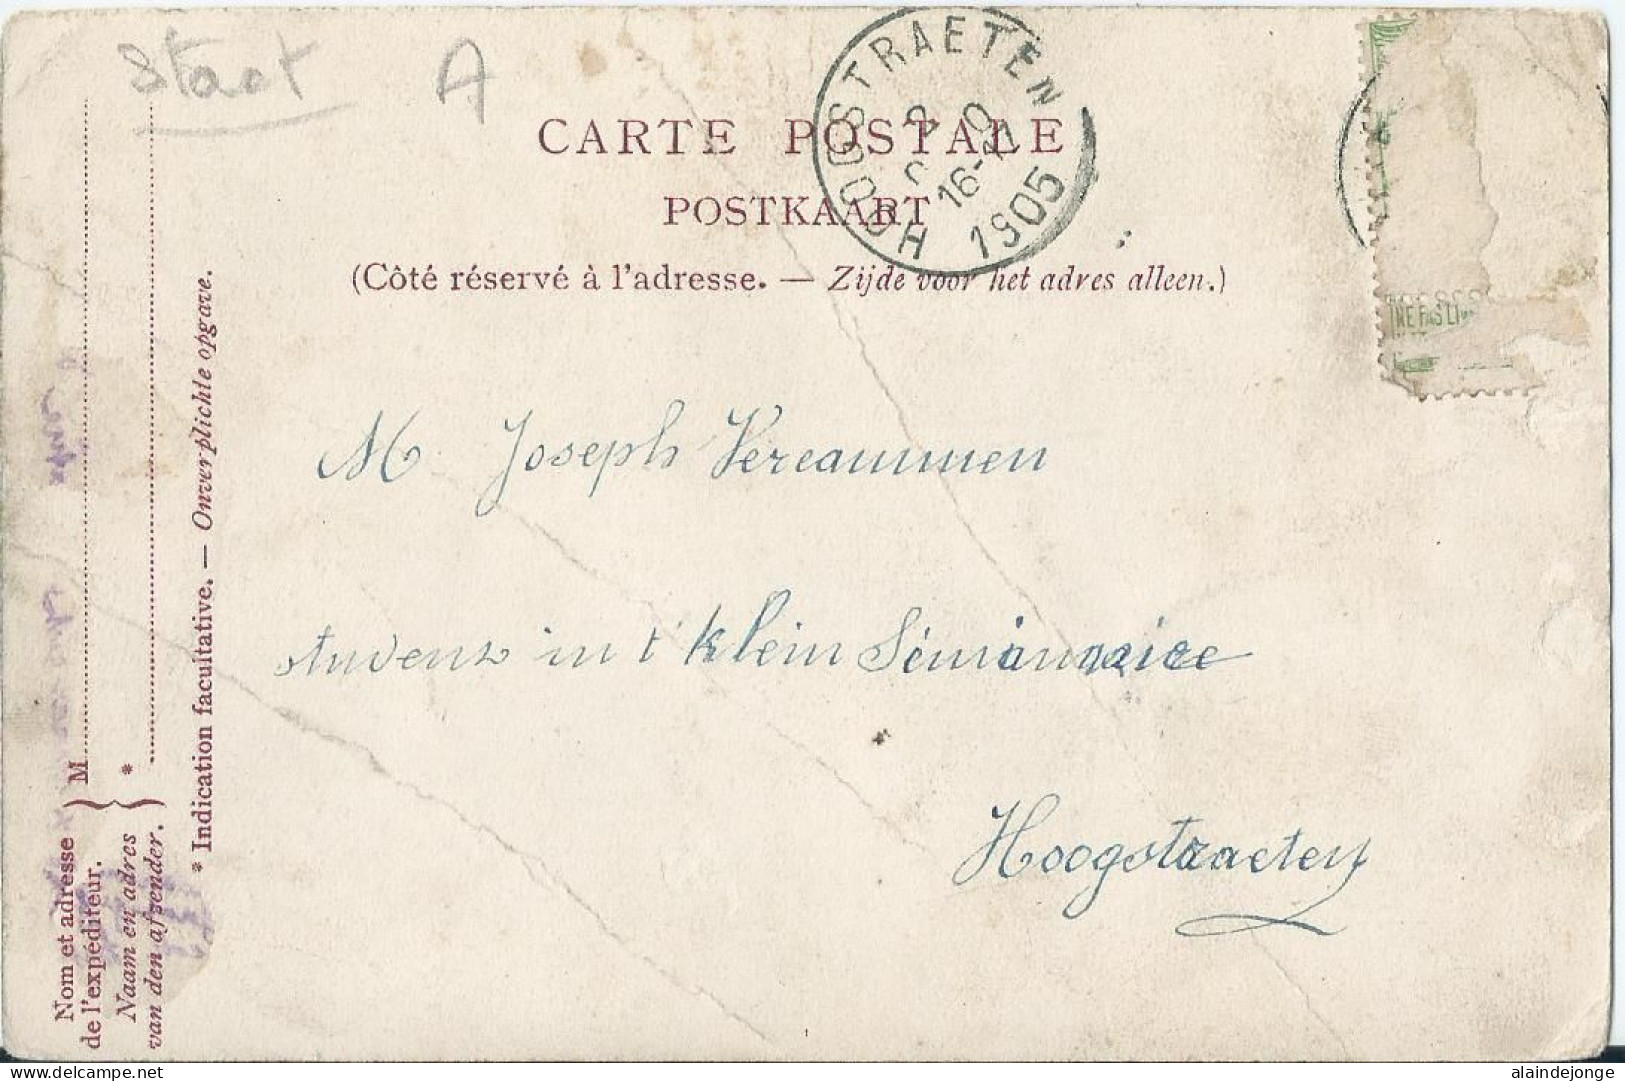 Staet A
CARTE POSTALE
POSTKAART
(Côté réservé à l'adresse. — Zijde voor het adres alleen.)
HOOGSTRAETEN
1905
M Joseph Vereammen
studenz in t' klein Séminnaice
Hoogstraeten
Nom et adresse
de l'expéditeur.
Naam en adres
van den afzender.
M
*
* Indication facultative. — Onverplichte opgave.
alaindejonge